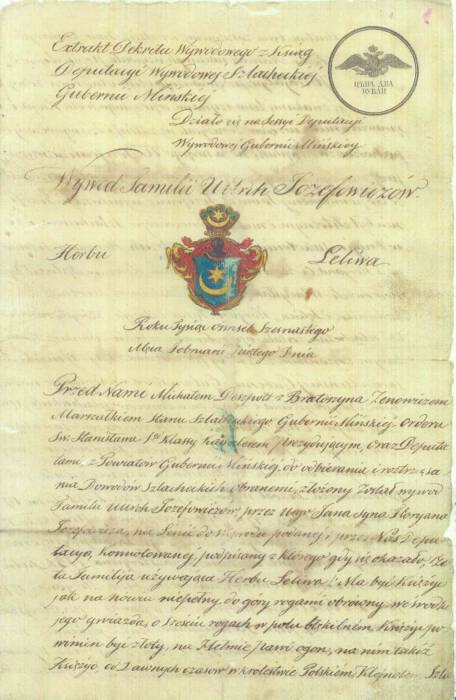 Extrakt Dekretu Wywodowego z Ksiąg
Deputacyi Wywodowey Szlacheckiéy
Gubernii Mińskiéy
ЦѢНА ДВА
РУБЛИ
Działo się na Sessyi Deputacyi
Wywodowey Gubernii Mińskiey
Wywód Familii Urodzonych Jozefowiczów
Herbu Leliwa
Roku Tysiąc Osmset Szesnastego
Mca Februarii Dnia
Przed Nami Michałem Despott z Bratoszyna Zenowiczem
Marszałkiem Stanu Szlacheckiego Gubernii Mińskiéy, Orderu
Sw. Stanisława Klassy Kawalerem prezydującym, oraz Deputa
tami, z Powiatów Gubernii Mińskiéy, do odbierania i roztrząsa
nia Dowodów Szlacheckich obranemi, złożony został wywod
Familii Jozefowiczow, przez Jana syna Floryana
Jozefowicza, na Linii do podaney i przez Nas Depu
tacyą, podpisany z ktorego gdy się okazało, iż
ta Familija używająca Herbu Leliwa, Ma być Księżyc
jak na nowiu niepełny do góry rogami obrócony, we środku
jego gwiazda, o sześciu rogach w polu błękitnem, Księżyc po
winien być złoty, na Hełmie pawi ogon, na nim takiż
Księżyc od Dawnych czasow w Krolestwie Polskiem, Kleynotem Szla